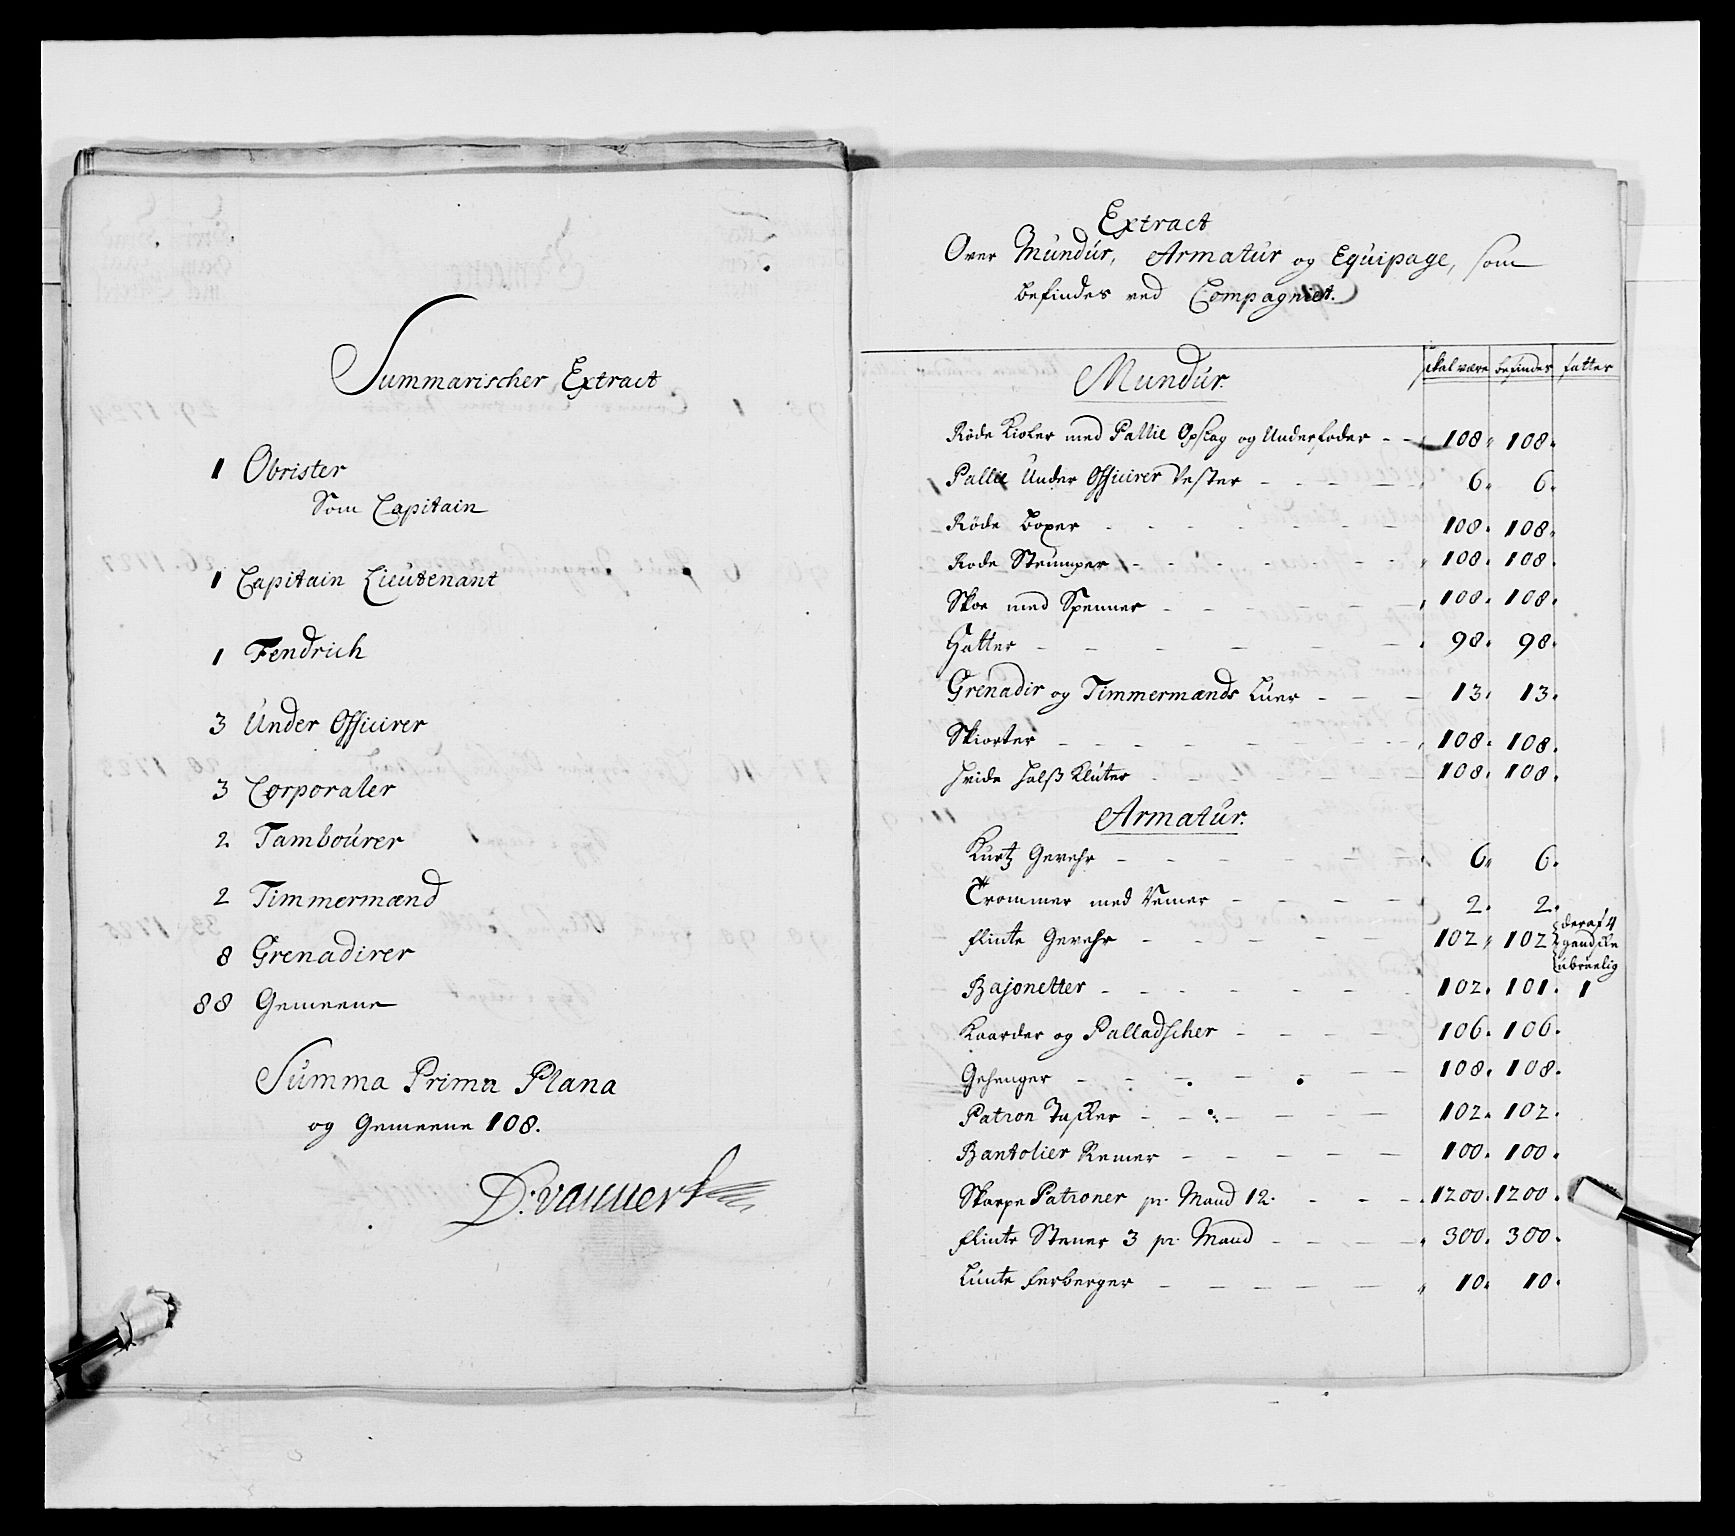 Summarischer Extract
1 Obrister
Som Capitain
1 Capitain Lieutenant
1 Fendrich
3 Under Officirer
3 Corporaler
2 Tambourer
2 Timmermænd
8 Grenadirer
88 Gemeene
Summa Prima Plana
og Gemeene 108.
Extract
Over Mundur, Armatur og Equipage, som
befindes ved Compagniet.
Mundur. skal være befindes fatter
Røde Kioler med Pallie Opslag og Underfoder - - 108. 108.
Pallie Under Officirer Vester - - - - 6. 6.
Røde Boxer - - - - - - - 108. 108.
Rode Strumper - - - - - - - 108. 108.
Skoe med Spenner - - - - - - 108. 108.
Hatter - - - - - - - 98. 98.
Grenadir og Timmermænds Luer - - - 13. 13.
Skiorter - - - - - - - 108. 108.
Hvide Halß Kluter - - - - - - 108. 108.
Armatur.
Kurtz Gevehr - - - - - - 6. 6.
Trommer med Remer - - - - 2. 2.
Flinte Gevehr - - - - - - 102. 102 deraf 4 ubruelig
Bajonetter - - - - - - - 102. 101. 1
Kaarder og Palladscher - - - - 106. 106.
Gehenger - - - - - - 108. 108.
Patron Tasker - - - - - - 102. 102.
Bantolier Remer - - - - - 100. 100.
Skarpe Patroner pr. Mand 12. - - - 1200. 1200.
Flinte Stener 3 pr. Mand - - - - 300. 300.
Lunte Ferberger - - - - - - 10. 10.